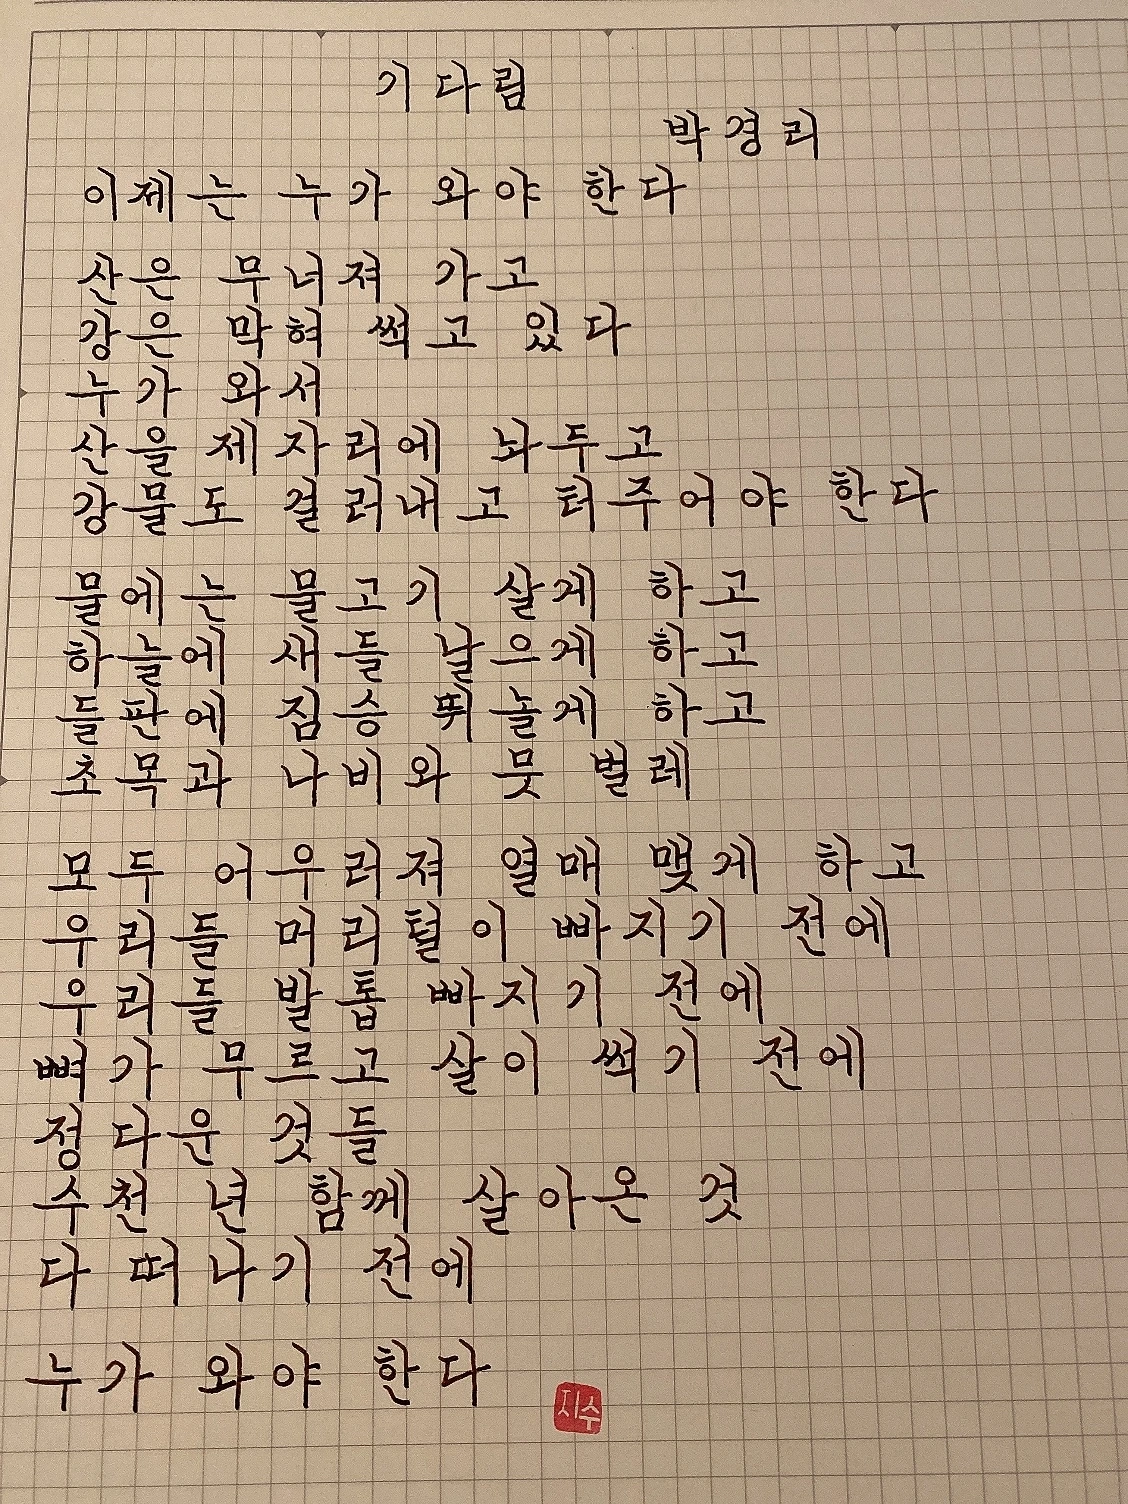 기다림
박경리
이제는 누가 와야 한다
산은 무너져 가고
강은 막혀 썩고 있다
누가 와서
산을 제자리에 놔두고
강물도 걸러내고 터주어야 한다
물에는 물고기 살게 하고
하늘에 새들 날으게 하고
들판에 짐승 뛰놀게 하고
초목과 나비와 뭇 벌레
모두 어우러져 열매 맺게 하고
우리들 머리털이 빠지기 전에
우리들 발톱 빠지기 전에
뼈가 무르고 살이 썩기 전에
정다운 것들
수천 년 함께 살아온 것
다 떠나기 전에
누가 와야 한다
지수